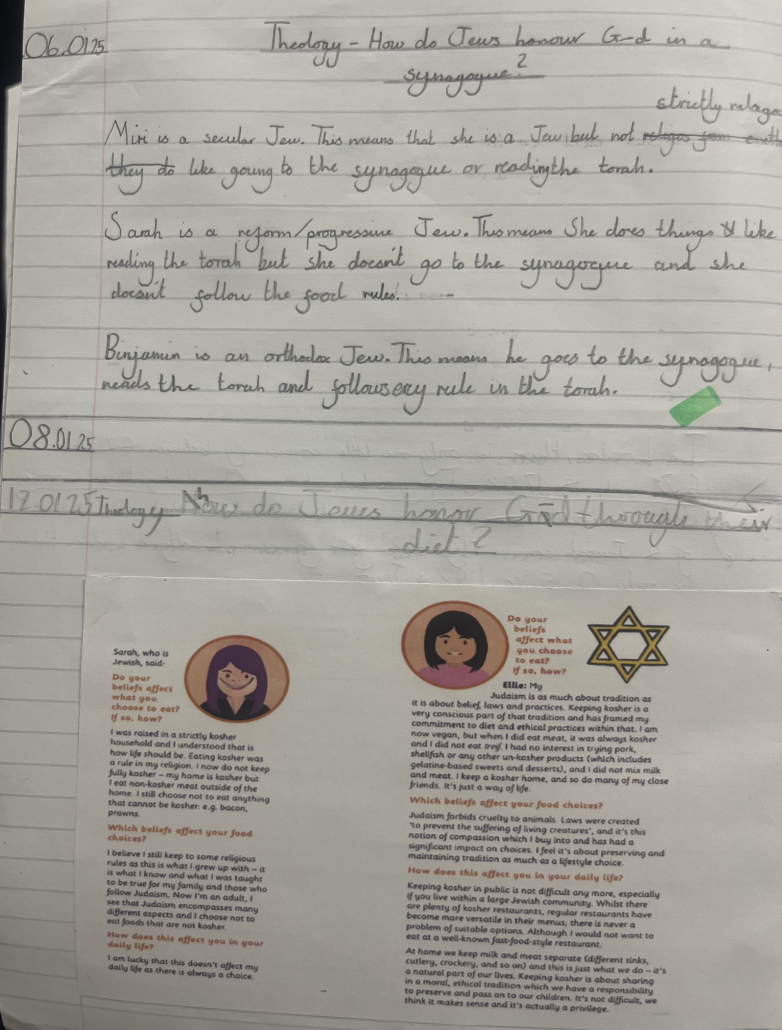 06.01.25
Theology - How do Jews honour G-d in a
synagogue?
strictly
Miri is a secular Jew. This means that she is a Jew but not
they do like going to the synagogue or reading the torah.
Sarah is a reform/progressive Jew. This means She does things like
reading the torah but she doesn't go to the synagogue and she
doesn't follow the food rules.
Binjamin is an orthodox Jew. This means he goes to the synagogue,
reads the torah and follows evry rule in the torah.
08.01.25
12.01.25 Theology How do Jews honor G-d through their
diet?
Sarah, who is
Jewish, said:
Do your
beliefs affect
what you
choose to eat?
If so, how?
I was raised in a strictly kosher
household and I understood that is
how life should be. Eating kosher was
a rule in my religion. I now do not keep
fully kosher – my home is kosher but
I eat non-kosher meat outside of the
home. I still choose not to eat anything
that cannot be kosher: e.g. bacon,
prawns.
Which beliefs affect your food
choices?
I believe I still keep to some religious
rules as this is what I grew up with – it
is what I know and what I was taught
to be true for my family and those who
follow Judaism. Now I'm an adult, I
see that Judaism encompasses many
different aspects and I choose not to
eat foods that are not kosher.
How does this affect you in your
daily life?
I am lucky that this doesn't affect my
daily life as there is always a choice.
Do your
beliefs
affect what
you choose
to eat?
If so, how?
Ellie: My
Judaism is as much about tradition as
it is about belief, laws and practices. Keeping kosher is a
very conscious part of that tradition and has framed my
commitment to diet and ethical practices within that. I am
now vegan, but when I did eat meat, it was always kosher
and I did not eat treif. I had no interest in trying pork,
shellfish or any other un-kosher products (which includes
gelatine-based sweets and desserts), and I did not mix milk
and meat. I keep a kosher home, and so do many of my close
friends. It's just a way of life.
Which beliefs affect your food choices?
Judaism forbids cruelty to animals. Laws were created
'to prevent the suffering of living creatures', and it's this
notion of compassion which I buy into and has had a
significant impact on choices. I feel it's about preserving and
maintaining tradition as much as a lifestyle choice.
How does this affect you in your daily life?
Keeping kosher in public is not difficult any more, especially
if you live within a large Jewish community. Whilst there
are plenty of kosher restaurants, regular restaurants have
become more versatile in their menus; there is never a
problem of suitable options. Although I would not want to
eat at a well-known fast-food-style restaurant.
At home we keep milk and meat separate (different sinks,
cutlery, crockery, and so on) and this is just what we do – it's
a natural part of our lives. Keeping kosher is about sharing
in a moral, ethical tradition which we have a responsibility
to preserve and pass on to our children. It's not difficult, we
think it makes sense and it's actually a privilege.